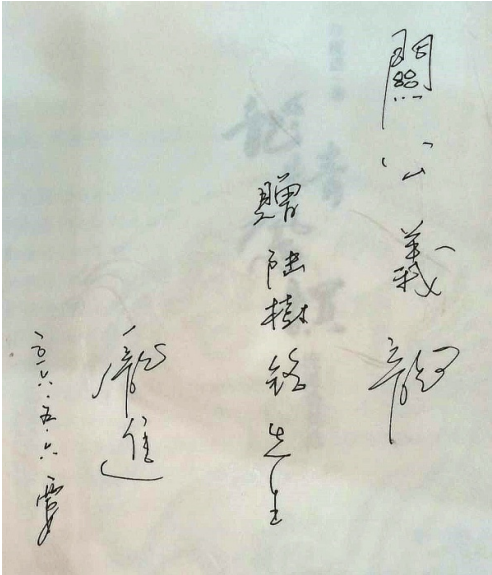 關公義龍
贈陸樹銘先生
龐進
二〇一六·五·六